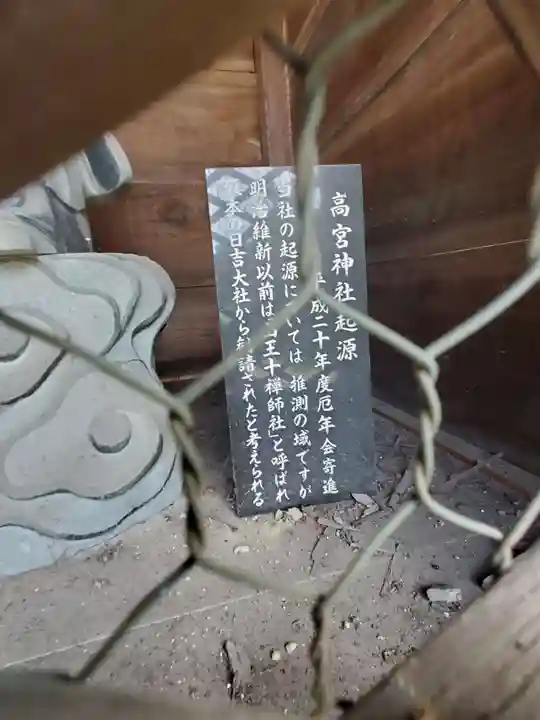 高宮神社起源
平成二十年度厄年会寄進
当社の起源については推測の域ですが
明治維新以前は「山王十禅師社」と呼ばれ
本の日吉大社から勧請されたと考えられる